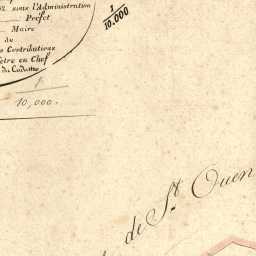 sous l'Administration
Préfet
Maire
de
Contributions
en Chef
du Cadastre
1
10,000.
1
10.000
de St. Ouen